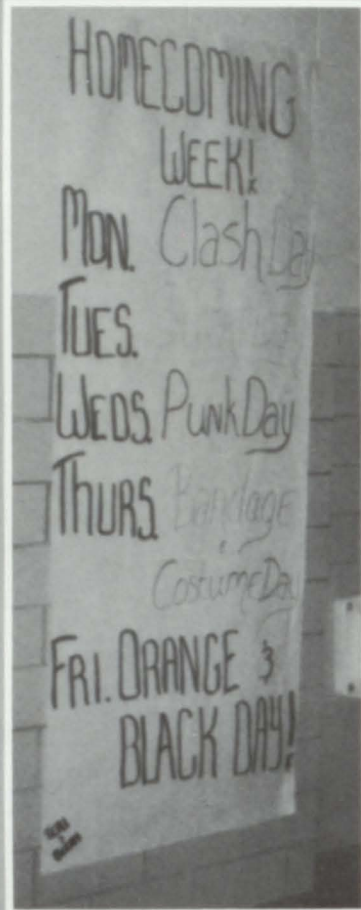 HOMECOMING
WEEK!
MON. Clash Day
TUES.
WEDS. Punk Day
THURS. Bandage
&
Costume Day
FRI. ORANGE &
BLACK DAY!